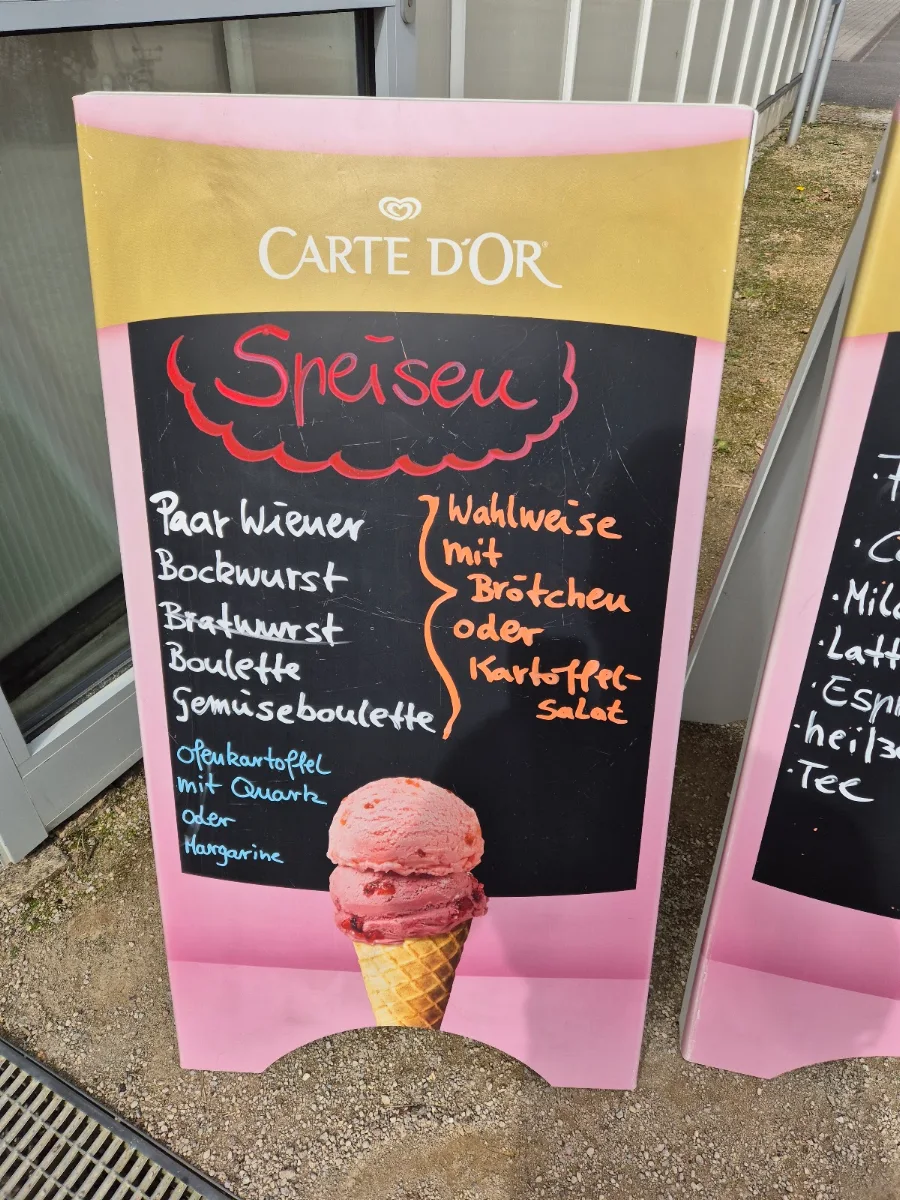 CARTE D'OR
Speisen
Paar Wiener
Bockwurst
Bratwurst
Boulette
Gemüseboulette
Wahlweise
mit
Brötchen
oder
Kartoffel-
Salat
Ofenkartoffel
mit Quark
oder
Margarine
Tee